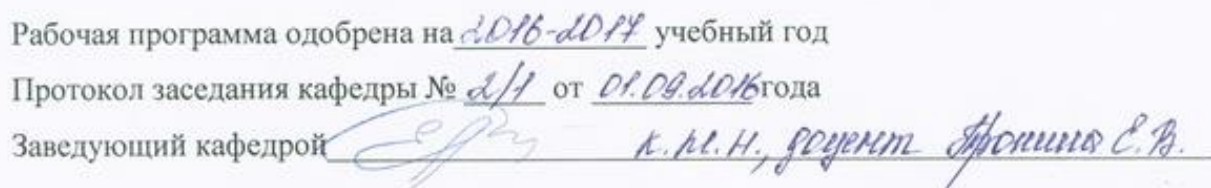 Рабочая программа одобрена на 2016-2017 учебный год
Протокол заседания кафедры № 2/1 от 01.09.2016 года
Заведующий кафедрой к.м.н., доцент Пронина Е.В.